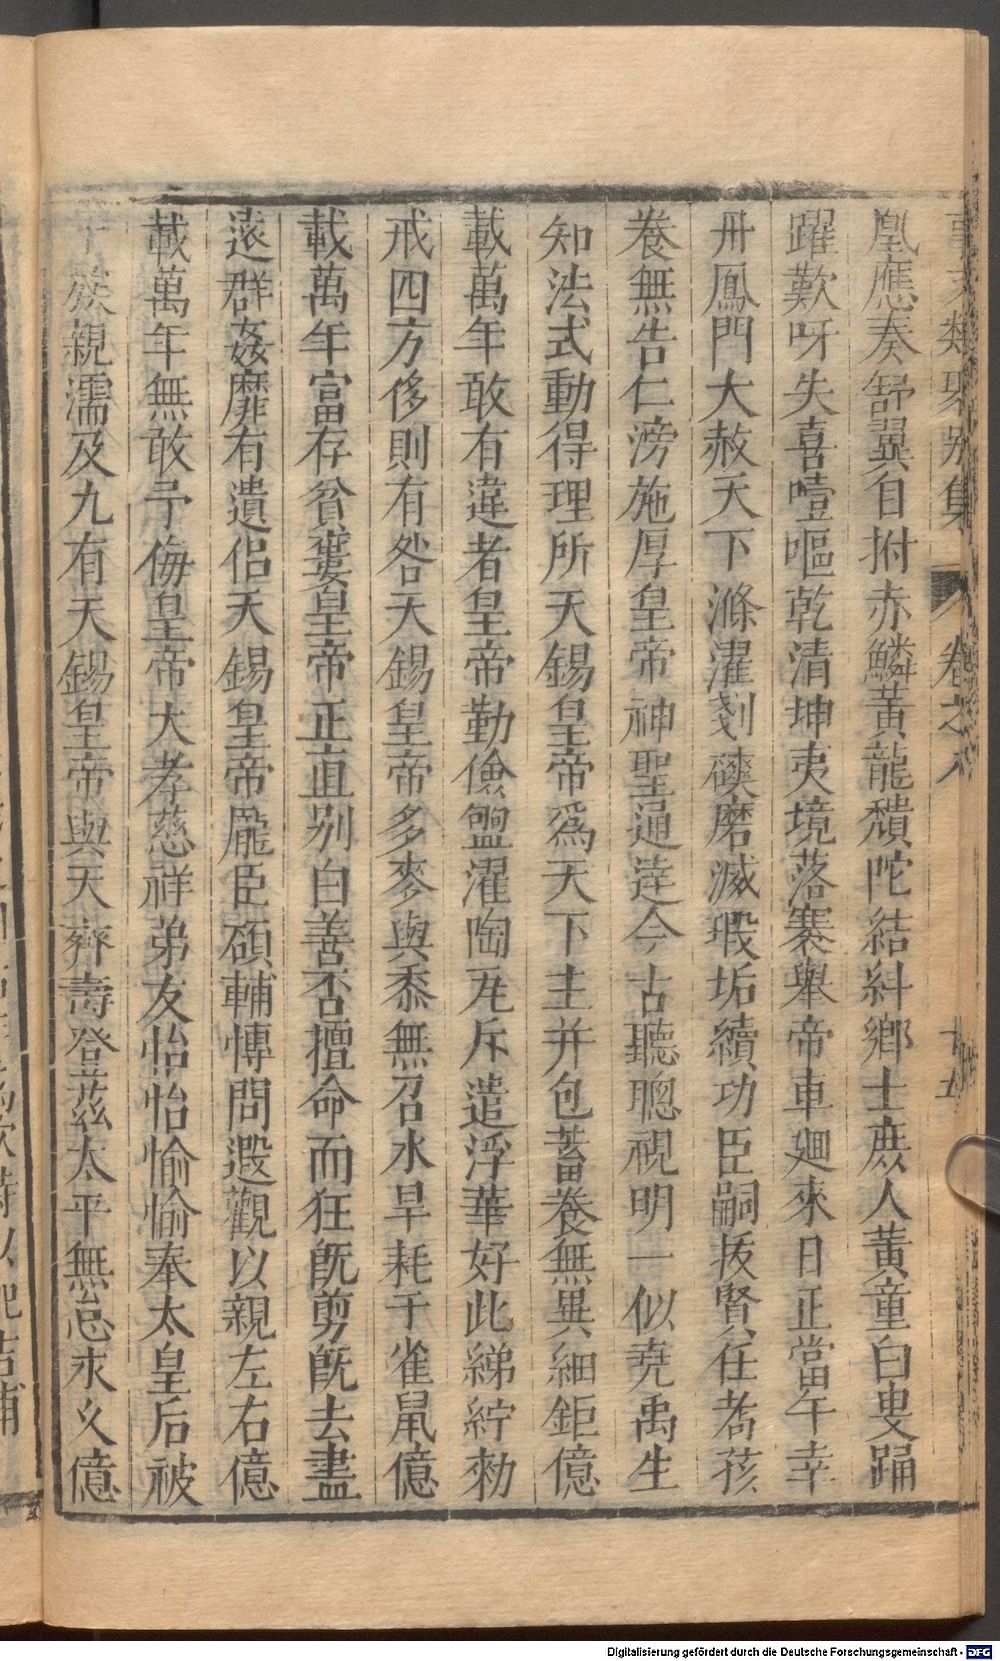 事文類聚別集 卷之八 廿五
凰應奏舒翼自拊赤鱗黃龍𩔞陀結糾鄉士庶人黃童白叟踊
躍歎呀失喜噎嘔乾清坤夷境落褰舉帝車廻來日正當午幸
丹鳳門大赦天下滌濯剗磢磨滅瑕垢續功臣嗣拔賢任耇孩
養無告仁滂施厚皇帝神聖通達今古聽聰視明一似堯禹生
知法式動得理所天錫皇帝爲天下主并包蓄養無異細鉅億
載萬年敢有違者皇帝勤儉盥濯陶瓦斥遣浮華好此綈紵勑
戒四方侈則有咎天錫皇帝多麥與黍無召水旱耗于雀鼠億
載萬年富存貧窶皇帝正直別白善否擅命而狂旣剪旣去盡
逺群姦靡有遺侣天錫皇帝厖臣碩輔博問遐觀以親左右億
載萬年無敢予侮皇帝大孝慈祥弟友怡怡愉愉奉太皇后被
于族親濡及九有天錫皇帝與天齊壽登茲太平無怠永久億
Digitalisierung gefördert durch die Deutsche Forschungsgemeinschaft - DFG